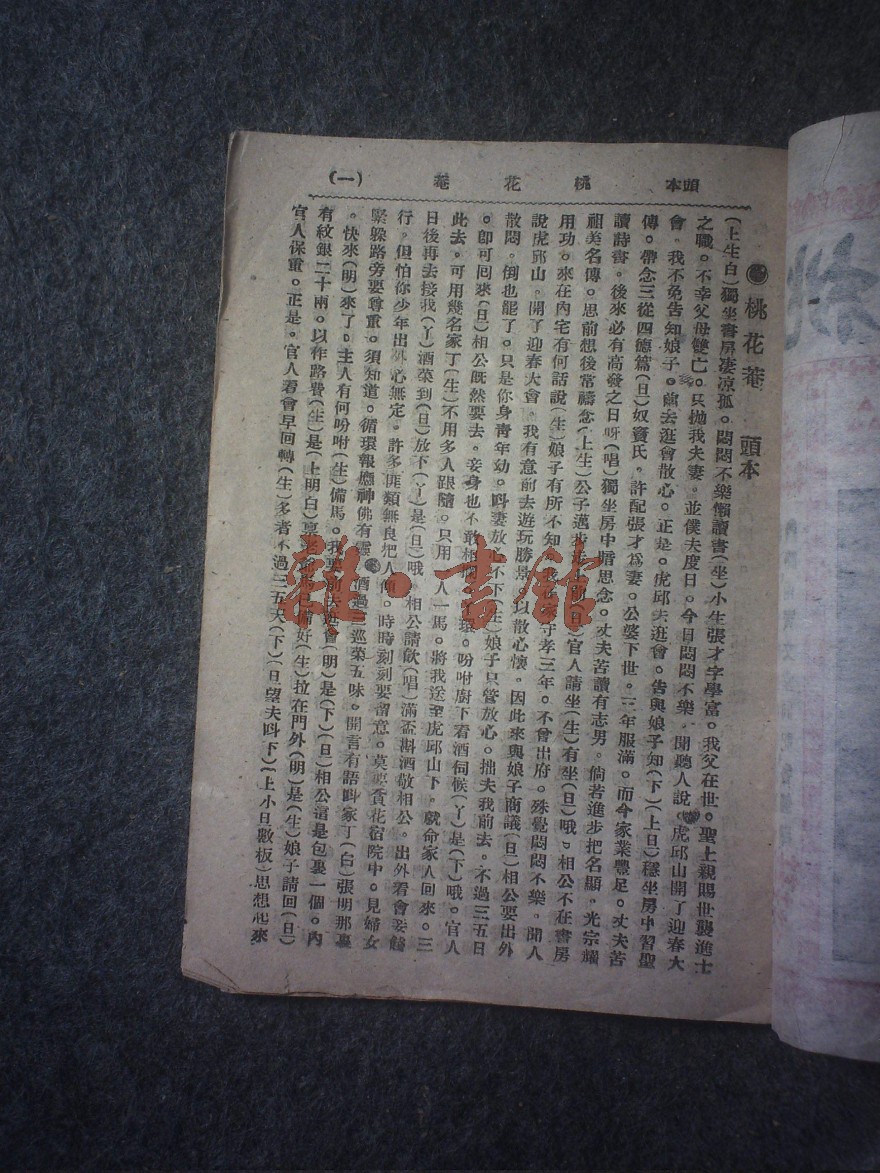 頭本 桃花菴 (一)
桃花菴 頭本
(上生白)獨坐書房凄凉孤。悶悶不樂懶讀書(坐)小生張才字學富。我父在世。聖上親賜世襲進士
之職。不幸父母雙亡。只拋我夫妻。並僕夫度日。今日悶悶不樂。聞聽人說。虎邱山開了迎春大
會。我不免告知娘子。前去逛會散心。正是。虎邱去逛會。告與娘子知(下)(上旦)穩坐房中習聖
傳。帶念三從四德篇(旦)奴竇氏。許配張才爲妻。公婆下世。三年服滿。而今家業豐足。丈夫苦
讀詩書。後來必有高發之日呀(唱)獨坐房中暗思念。丈夫苦讀有志男。倘若進步把名顯。光宗耀
祖美名傳。思前想後常禱念(上生)公子邁步走上前(旦)官人請坐(生)有坐(旦)哦。相公不在書房
用功。來在內宅有何話說(生)娘子有所不知。我在家守孝三年。不曾出府。殊覺悶悶不樂。聞人
說虎邱山。開了迎春大會。我有意前去遊玩勝景。以散心懷。因此來與娘子商議(旦)相公要出外
散悶。倒也罷了。只是你身靑年幼。呌妻放心不下(生)娘子只管放心。拙夫我前去。不過三五日
。卽可回來(旦)相公旣然要去。妾身也不敢相 環。吩咐廚下看酒伺候(丫)是(下)哦。官人
此去。可用幾名家丁(生)不用多人跟隨。只用 人一馬。將我送至虎邱山下。就命家人回來。三
日後再去接我(丫)酒菜到(旦)放下(丫)是(旦)哦。相公請飮(唱)滿盃斟酒敬相公。出外看會妾囑
行。但怕你少年出外心無定。許多匪類無良把人傾。時時刻刻要留意。莫要貪花宿院中。見婦女
緊躲路旁要尊重。須知道。循環報應神佛有靈。酒過三巡菜五味。開言有語呌家丁(白)張明那裏
。快來(明)來了。主人有何吩咐(生)備馬。我要前去逛會(明)是(下)(旦)相公這是包裹一個。內
有紋銀二十兩。以作路費(生)是(上明白)禀 備好(生)拉在門外(明)是(生)娘子請回(旦)
官人保重。正是。官人看會早回轉(生)多者不過三五天(下)(旦望夫呌下)(上小旦數板)思想起來
雜·書館